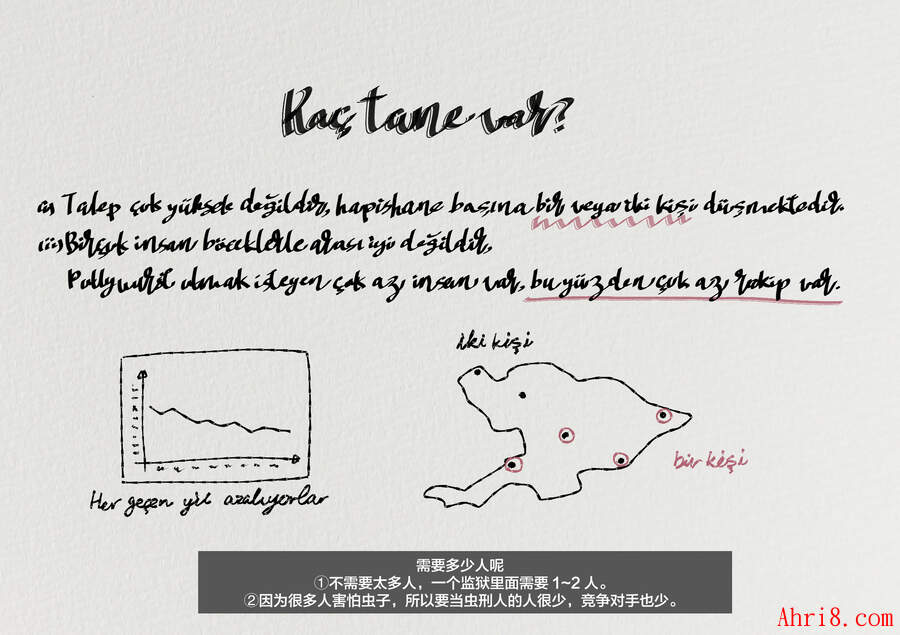 Kaç tane var?
(i) Talep çok yüksek değildir, hapishane başına bir veya iki kişi düşmektedir.
(ii) Birçok insan böceklerle arası iyi değildir,
olmak isteyen çok azı insan var, bu yüzden çok azı rakip var.
iki kişi
bir kişi
Her geçen yıl azalıyorlar
需要多少人呢
①不需要太多人，一个监狱里面需要 1~2 人。
②因为很多人害怕虫子，所以要当虫刑人的人很少，竞争对手也少。
Ahri8.com